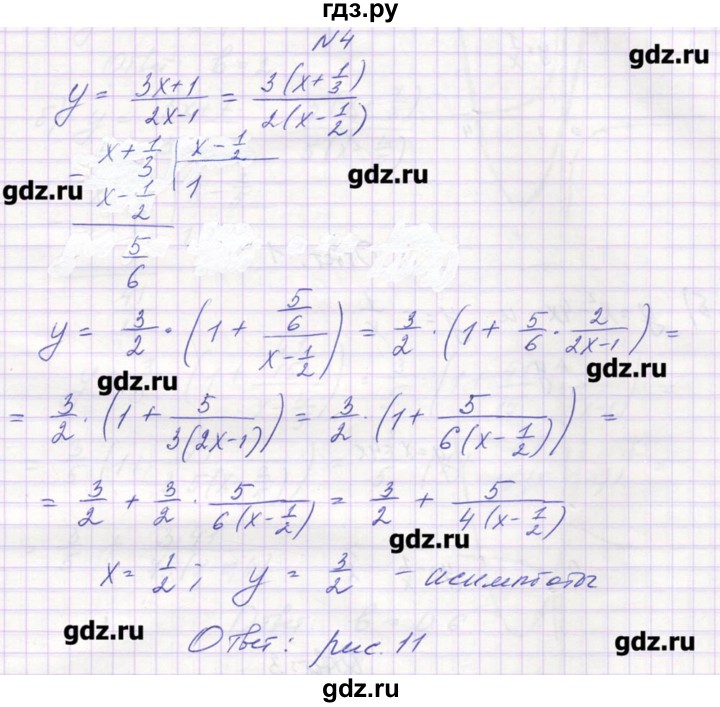 гдз.ру
N4
gdz.ru
y = \frac{3x+1}{2x-1} = \frac{3(x+\frac{1}{3})}{2(x-\frac{1}{2})}
- x+\frac{1}{3} | x-\frac{1}{2}
gdz.ru
gdz.ru
x-\frac{1}{2} | 1
\frac{5}{6}
y = \frac{3}{2} · (1 + \frac{\frac{5}{6}}{x-\frac{1}{2}}) = \frac{3}{2} · (1 + \frac{5}{6} · \frac{2}{2x-1}) =
gdz.ru
gdz.ru
= \frac{3}{2} · (1 + \frac{5}{3(2x-1)}) = \frac{3}{2} · (1 + \frac{5}{6(x-\frac{1}{2})}) =
= \frac{3}{2} + \frac{3}{2} · \frac{5}{6(x-\frac{1}{2})} = \frac{3}{2} + \frac{5}{4(x-\frac{1}{2})}
gdz.ru
x = \frac{1}{2}; y = \frac{3}{2} - асимптоты
gdz.ru
Ответ: рис. 11
gdz.ru
gdz.ru